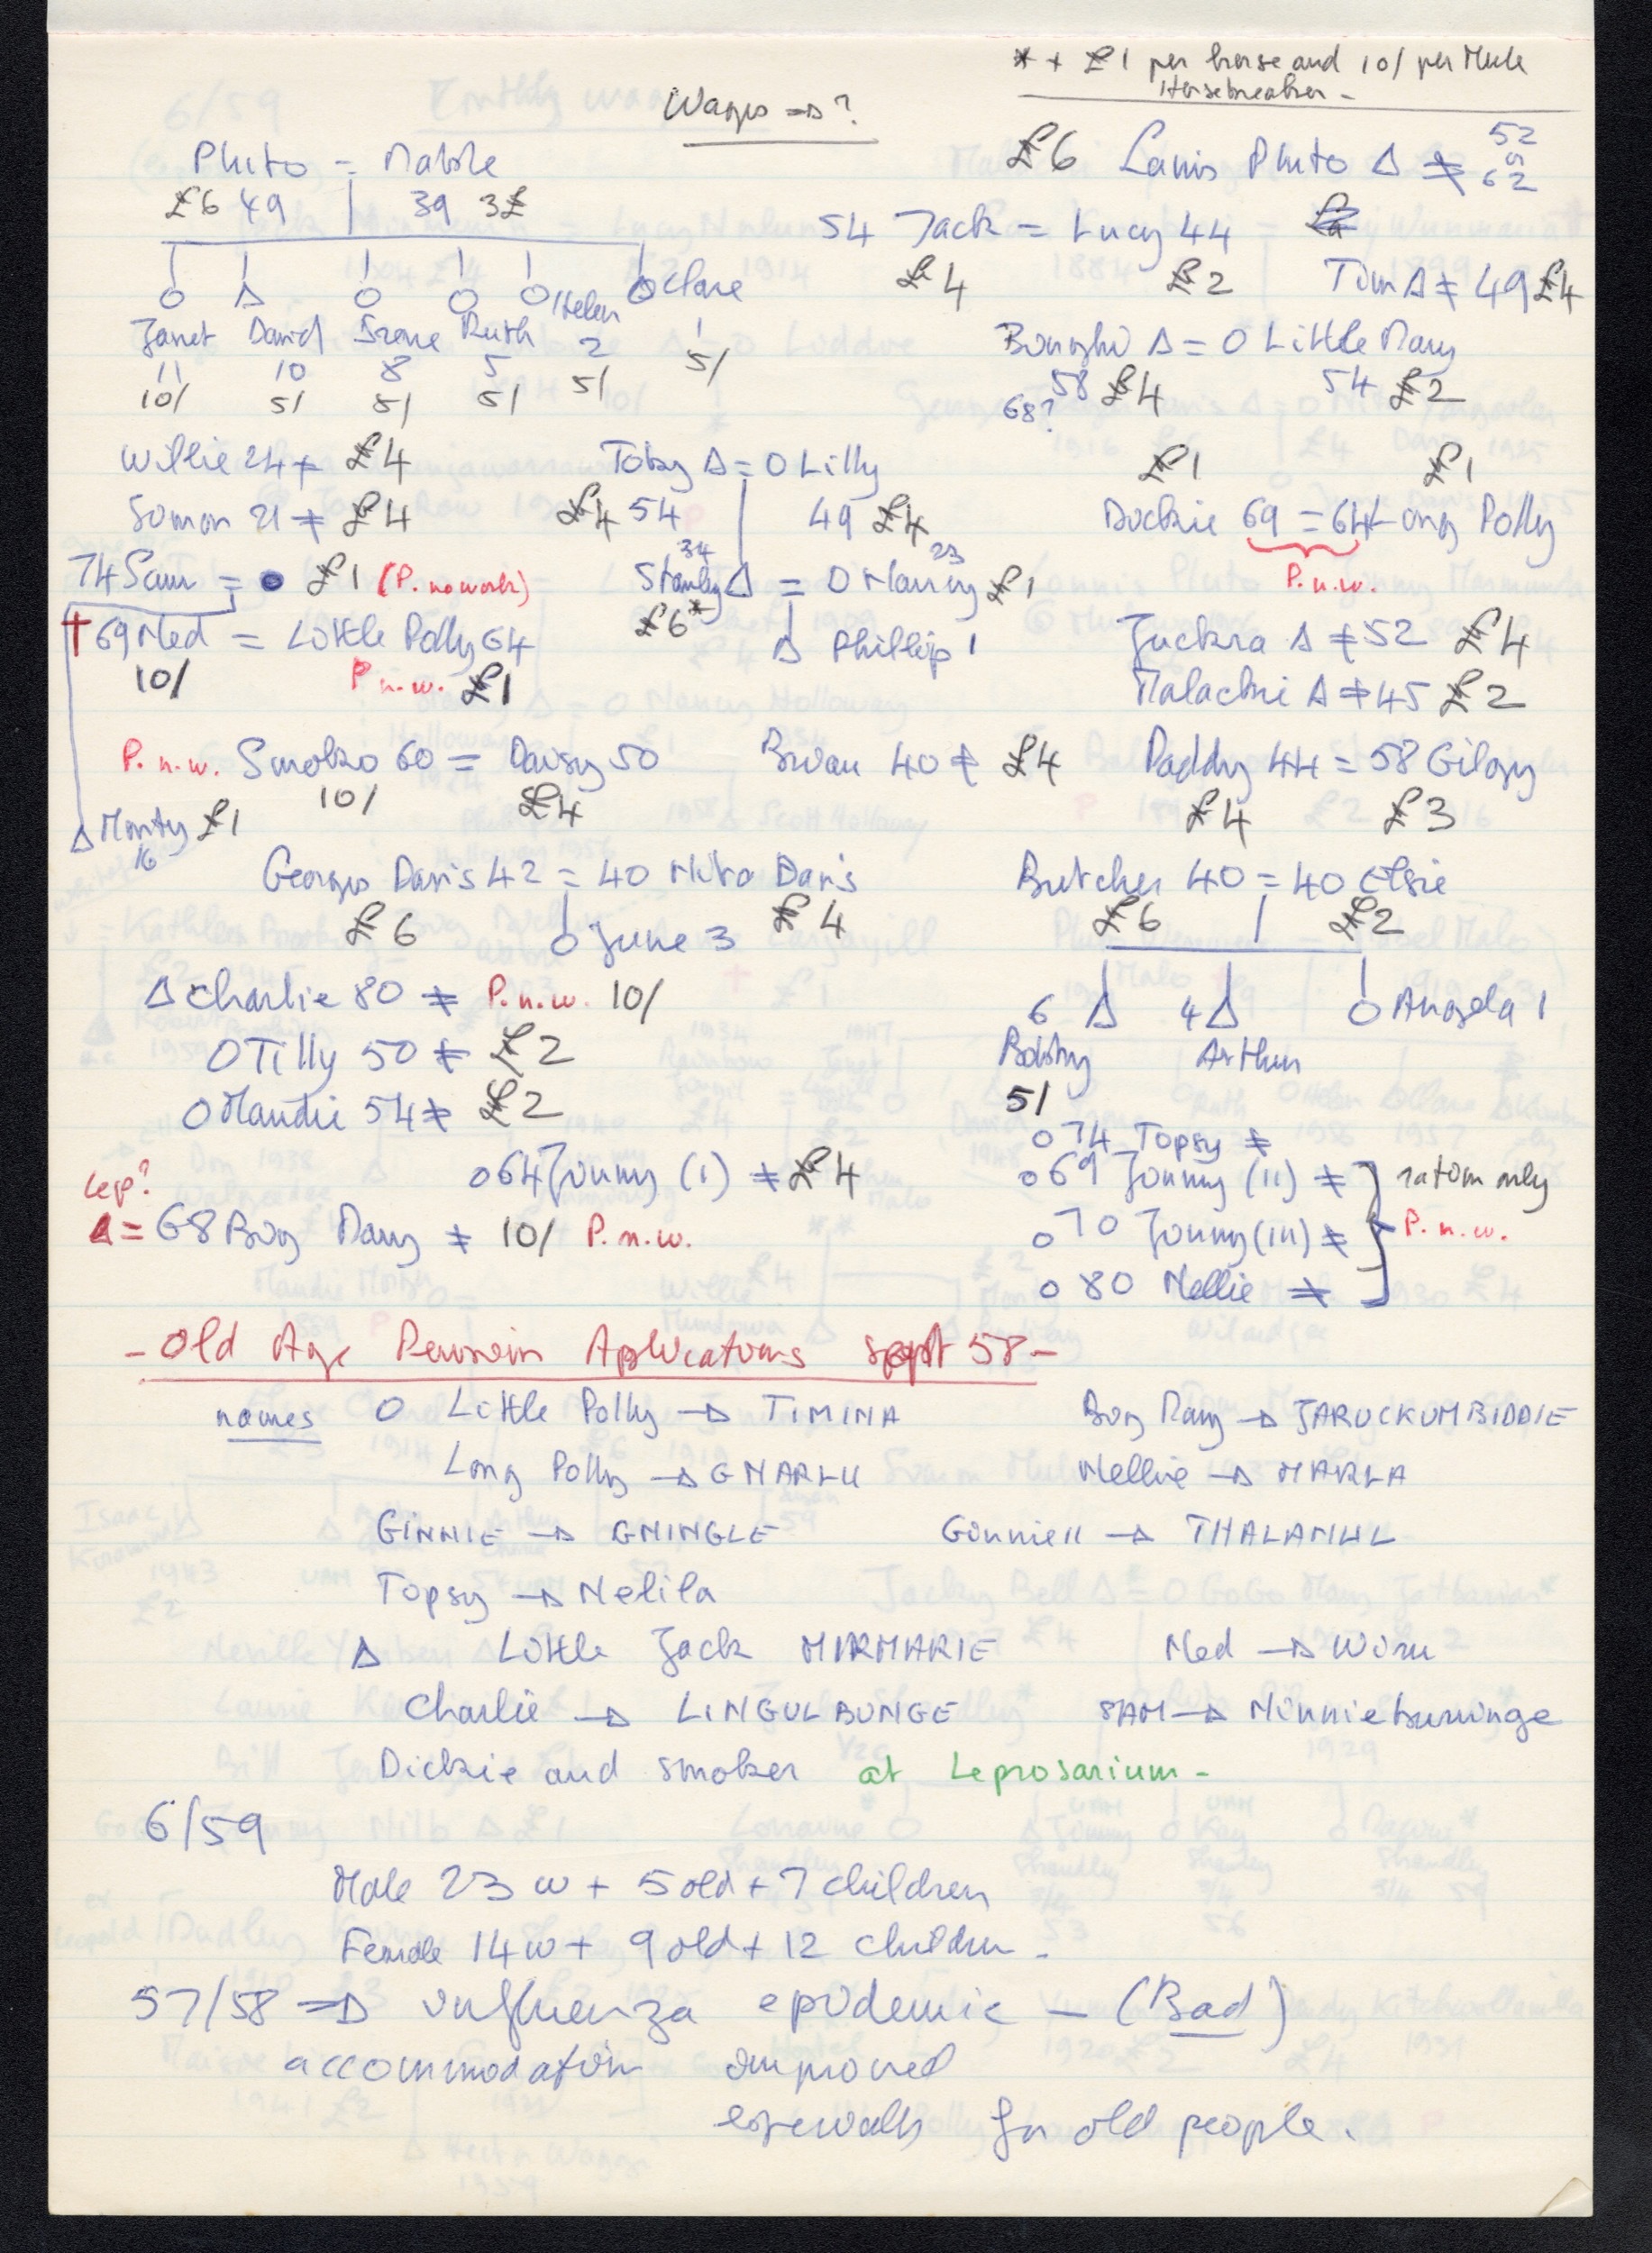 * + £1 per horse and 10/ per Mule
Horsebreaker -
Wages => ?
Pluto = Mable
£6 49 39 3£
£6 Lanis Pluto Δ ≠ 52
62
54 Jack = Lucy 44
£4 £2 Tim Δ ≠ 49 £4
O Δ O O O Helen Clare
Janet David Irene Ruth 2
11 10 8 5 5/ 5/
10/ 5/ 5/ 5/
Δ = O Little Mary
58 £4 54 £2
68?
Willie 24 ≠ £4 Toby Δ = O Lilly £1 £1
21 ≠ £4 £4 54 49 £4 69 = 64 Long Polly
P.n.w.
74 Sam = £1 (P. no work) 34 Δ = O Nancy 23 £1
£6*
† 69 Ned = Little Polly 64 Δ Phillip 1 Δ ≠ 52 £4
10/ P n.w. £1 Malachie Δ ≠ 45 £2
P.n.w. Smoko 60 = Daisy 50 40 ≠ £4 Paddy 44 = 58 Gilgy
10/ £4 £4 £3
Δ Monty £1
16
George Davis 42 = 40 Nita Davis Butcher 40 = 40 Elsie
£6 O June 3 £4 £6 £2
Δ Charlie 80 ≠ P.n.w. 10/ 6 Δ 4 Δ O Angela 1
O Tilly 50 ≠ £2 Bobby Arthur
O Maudie 54 ≠ £2 5/
O 74 Topsy ≠
Lep? O 64 Jinny (I) ≠ £4 O 69 Jinny (II) ≠ ration only
Δ = 68 Big Mary ≠ 10/ P.n.w. O 70 Jinny (III) ≠ P.n.w.
O 80 Nellie ≠
- Old Age Pension Applications Sept 58 -
names O Little Polly → TIMINA Big Mary → JARUCKUMBIDDIE
Long Polly → GNARLU Nellie → MARLA
GINNIE → GNINGLE Ginnie II → THALANUL
Topsy → Nelila
Δ Little Jack MIRMARIE Ned → Wiru
Charlie → LINGULBUNGE SAM → Minnieburringe
Dickie and Smoker at Leprosarium -
6/59
Male 23 w + 5 old + 7 children
Female 14 w + 9 old + 12 children -
57/58 => influenza epidemic - (Bad)
accommodation improved
for old people.